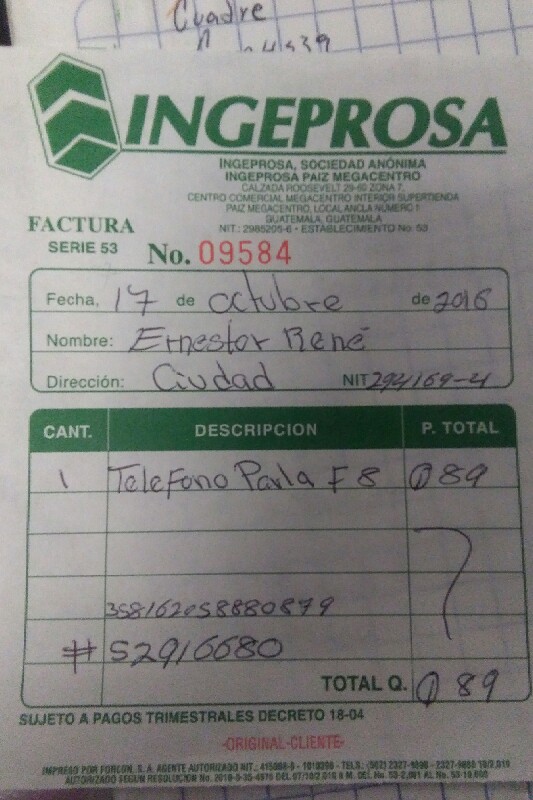 Cuadre
INGEPROSA
INGEPROSA, SOCIEDAD ANÓNIMA
INGEPROSA PAIZ MEGACENTRO
CALZADA ROOSEVELT 29-60 ZONA 7,
CENTRO COMERCIAL MEGACENTRO INTERIOR SUPERTIENDA
PAIZ MEGACENTRO, LOCAL ANCLA NUMERO 1
GUATEMALA, GUATEMALA
NIT.: 2985205-6 • ESTABLECIMIENTO No. 53
FACTURA
SERIE 53
No. 09584
Fecha, 17 de octubre de 2016
Nombre: Ernestor René
Dirección: Ciudad NIT 294169-4
CANT. DESCRIPCION P. TOTAL
1 Telefono Parla F8 Q 89
358162058880879
# 52916680
TOTAL Q. Q 89
SUJETO A PAGOS TRIMESTRALES DECRETO 18-04
-ORIGINAL-CLIENTE-
IMPRESO POR FORCON, S. A. AGENTE AUTORIZADO NIT.:
AUTORIZADO SEGUN RESOLUCION No.